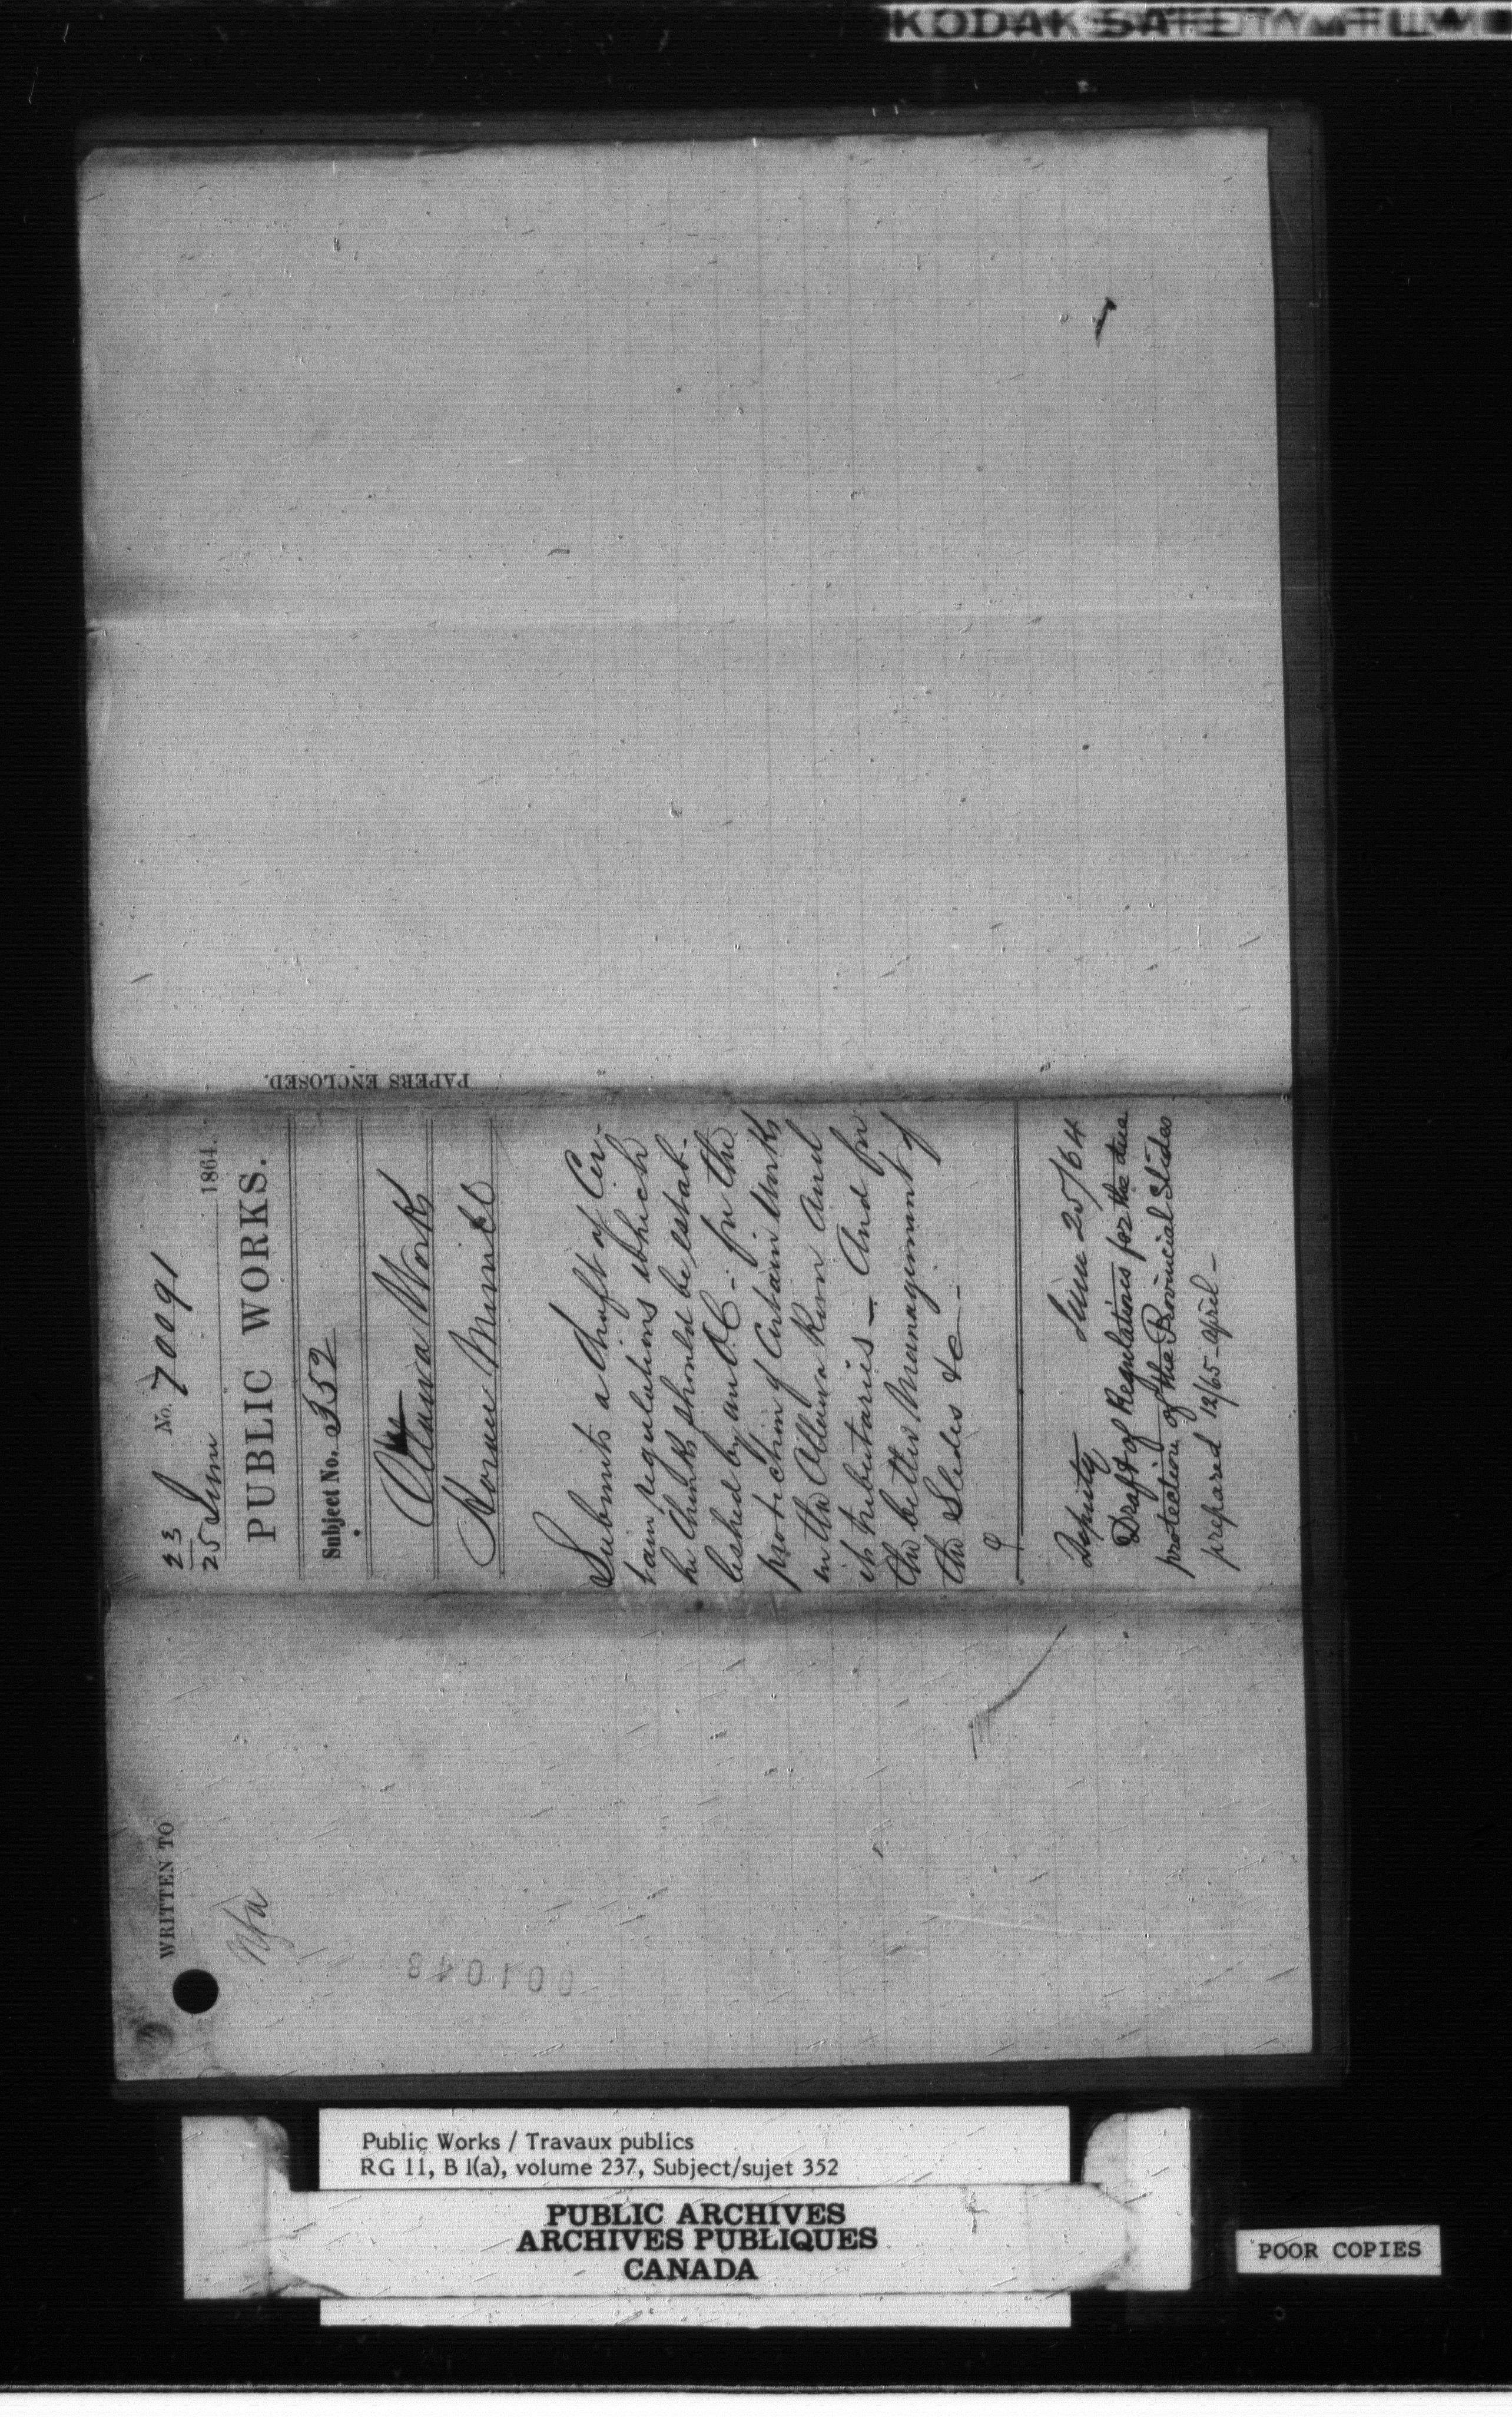 KODAK SAFETY FILM
23
25 June
No. 70091
1864.
PUBLIC WORKS.
Subject No. 352
Ottawa Works
Horace Merrill
Submits a draft of Cer-
tain regulations which
he thinks should be estab-
lished by an O.C. - for the
protection of Certain Works
in the Ottawa River and
its tributaries - And for
the better Management of
the Slides &c -
Deputy June 25/64
Draft of Regulations for the due
protection of the Provincial Slides
prepared 12/65 - April -
PAPERS ENCLOSED.
WRITTEN TO
Nfa
001043
Public Works / Travaux publics
RG 11, B 1(a), volume 237, Subject/sujet 352
PUBLIC ARCHIVES
ARCHIVES PUBLIQUES
CANADA
POOR COPIES